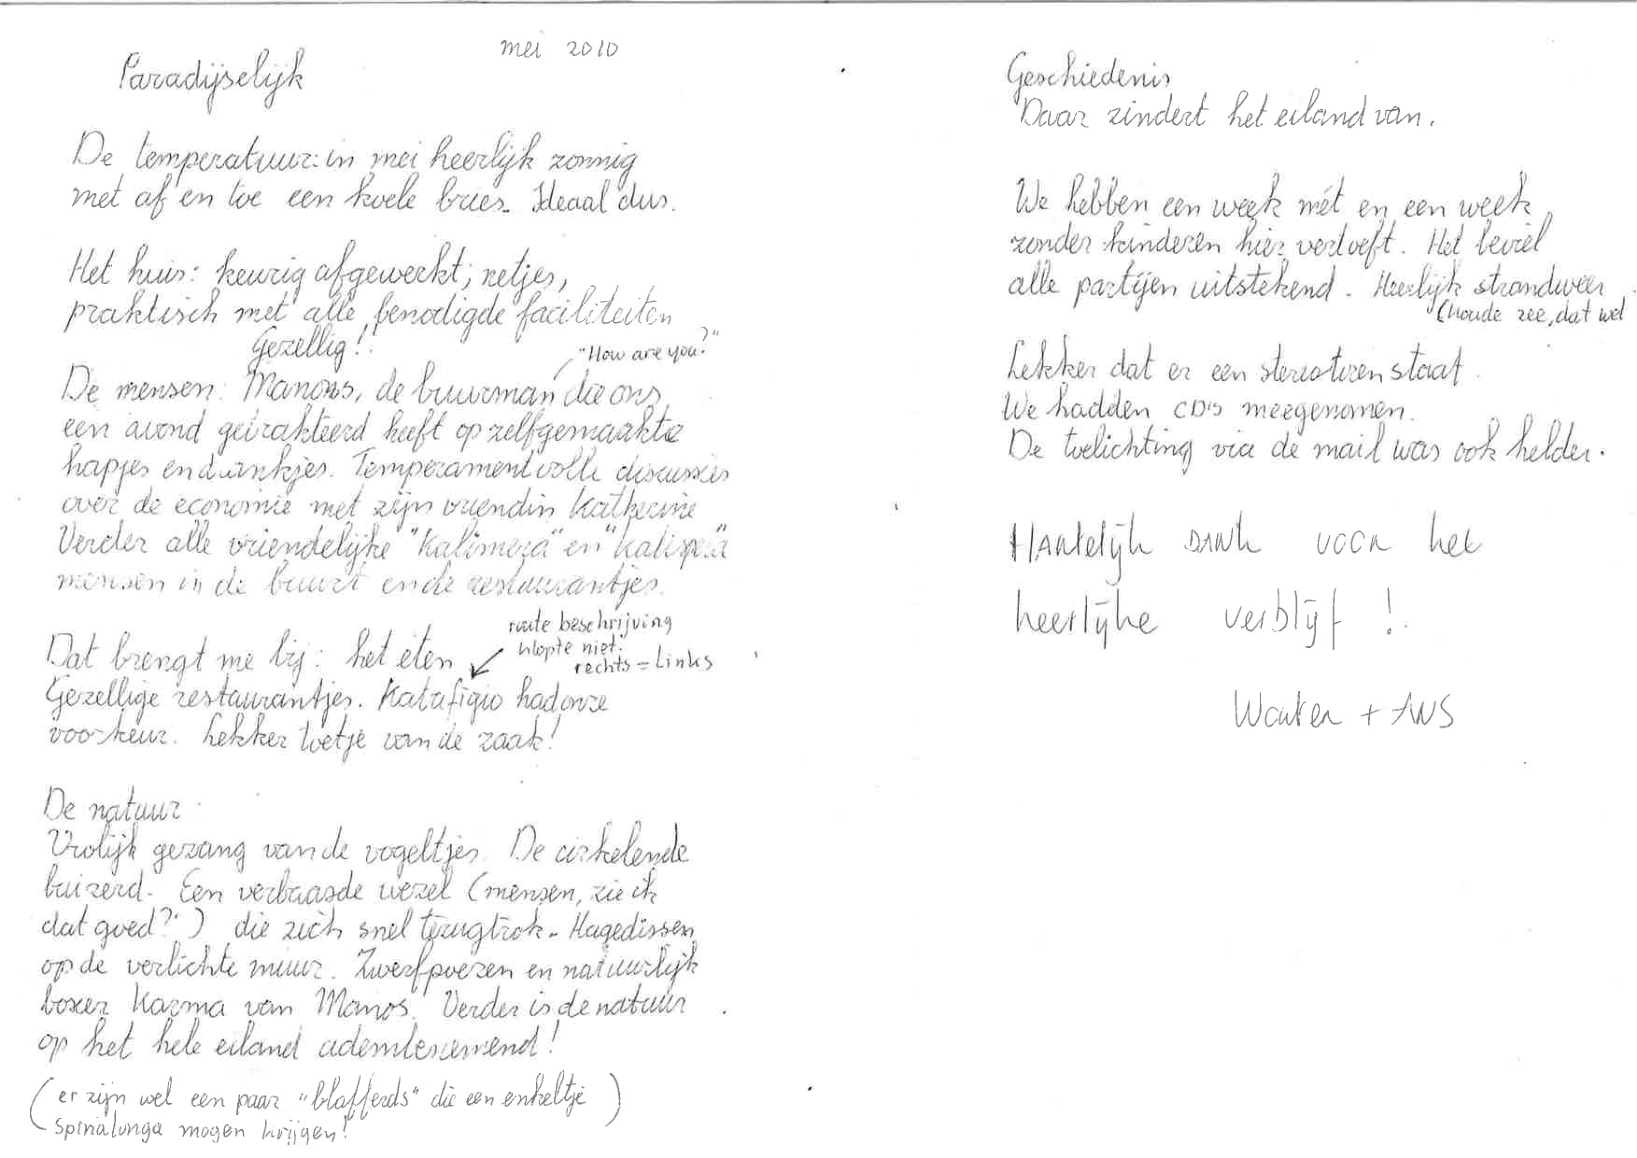 mei 2010
Paradijselijk
De temperatuur: in mei heerlijk zonnig
met af en toe een koele bries. Ideaal dus.
Het huis: keurig afgewerkt; netjes,
praktisch met alle benodigde faciliteiten
Gezellig!
"How are you?"
De mensen: Manows, de buurman die ons
een avond getrakteerd heeft op zelfgemaakte
hapjes en drankjes. Temperamentvolle discussies
over de economie met zijn vriendin Katherine
Verder alle vriendelijke "Kalimera" en "kalispera"
mensen in de buurt en de restaurantjes.
route beschrijving
klopte niet.
rechts = Links
Dat brengt me bij: het eten
Gezellige restaurantjes. Katafigio had onze
voorkeur. Lekker toetje van de zaak!
De natuur
Vrolijk gezang van de vogeltjes. De cirkelende
buizerd. Een verbaasde wezel (mensen, zie ik
dat goed?) die zich snel terugtrok. Hagedissen
op de verlichte muur. Zwerfpoezen en natuurlijk
boxer Karma van Manos. Verder is de natuur
op het hele eiland adembenemend!
(er zijn wel een paar "blafferds" die een enkeltje
Spinalonga mogen krijgen!)
Geschiedenis
Daar zindert het eiland van.
We hebben een week mét en een week
zonder kinderen hier vertoeft. Het beviel
alle partijen uitstekend. Heerlijk strandweer
(koude zee, dat wel
Lekker dat er een stereotoren staat
We hadden CD's meegenomen.
De toelichting via de mail was ook helder.
Hartelijk dank voor het
heerlijke verblijf!
Wouter + ANS